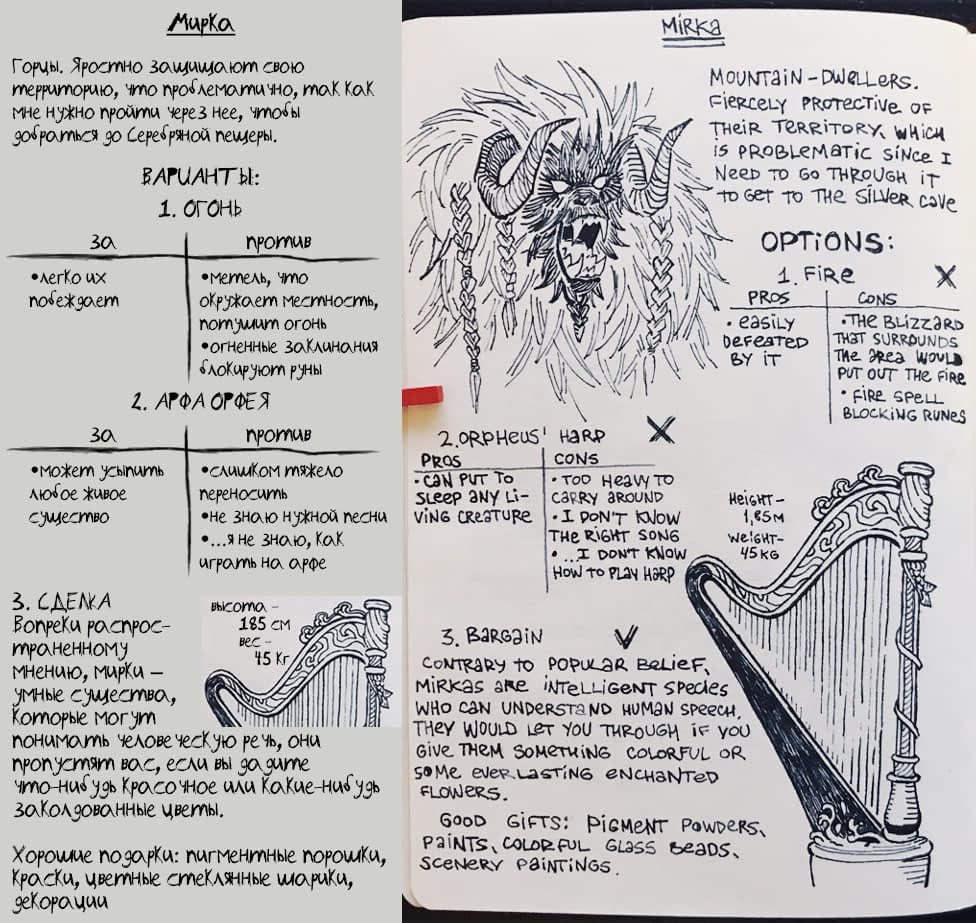 Мирка
Горцы. Яростно защищают свою
территорию, что проблематично, так как
мне нужно пройти через нее, чтобы
добраться до Серебряной пещеры.
ВАРИАНТЫ:
1. ОГОНЬ
за против
•легко их
побеждает
•метель, что
окружает местность,
потушит огонь
•огненные заклинания
блокируют руны
2. АРФА ОРФЕЯ
за против
•может усыпить
любое живое
существо
•слишком тяжело
переносить
•не знаю нужной песни
•...я не знаю, как
играть на арфе
3. СДЕЛКА
Вопреки распрос-
траненному
мнению, мирки –
умные существа,
которые могут
понимать человеческую речь, они
пропустят вас, если вы дадите
что-нибудь красочное или какие-нибудь
заколдованные цветы.
высота –
185 см
вес –
45 кг
Хорошие подарки: пигментные порошки,
краски, цветные стеклянные шарики,
декорации
MIRKA
MOUNTAIN-DWELLERS.
FIERCELY PROTECTIVE OF
THEIR TERRITORY, WHICH
IS PROBLEMATIC SINCE I
NEED TO GO THROUGH IT
TO GET TO THE SILVER CAVE
OPTIONS:
1. FIRE X
PROS CONS
• EASILY
DEFEATED
BY IT
• THE BLIZZARD
THAT SURROUNDS
THE AREA WOULD
PUT OUT THE FIRE
• FIRE SPELL
BLOCKING RUNES
2. ORPHEUS' HARP X
PROS CONS
• CAN PUT TO
SLEEP ANY LI-
VING CREATURE
• TOO HEAVY TO
CARRY AROUND
• I DON'T KNOW
THE RIGHT SONG
• ...I DON'T KNOW
HOW TO PLAY HARP
HEIGHT –
1,85M
WEIGHT –
45KG
3. BARGAIN ✓
CONTRARY TO POPULAR BELIEF,
MIRKAS ARE INTELLIGENT SPECIES
WHO CAN UNDERSTAND HUMAN SPEECH,
THEY WOULD LET YOU THROUGH IF YOU
GIVE THEM SOMETHING COLORFUL OR
SOME EVERLASTING ENCHANTED
FLOWERS.
GOOD GIFTS: PIGMENT POWDERS,
PAINTS, COLORFUL GLASS BEADS,
SCENERY PAINTINGS.